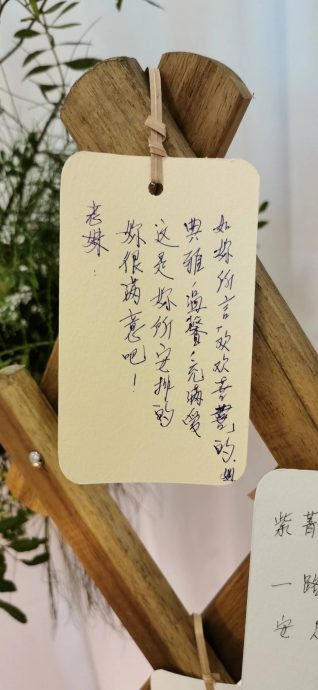 老妹：
妳很滿意吧！
這是妳所安排的
典雅、溫馨、充滿愛
如妳所言，欢欢喜喜的
紫菁
一路
安